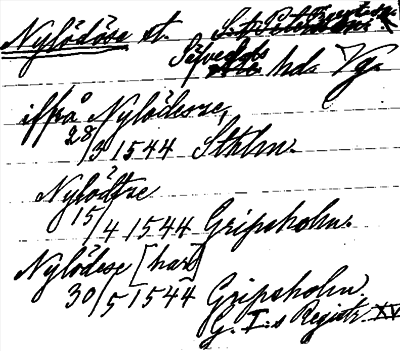 Nylödöse st.
Sefvedals hds Vg.
ifrå Nylödesze,
28/3 1544 Sthlm.
Nylödtze
15/4 1544 Gripsholm.
Nylödese [har]
30/5 1544 Gripsholm.
G. I:s Registr. XV